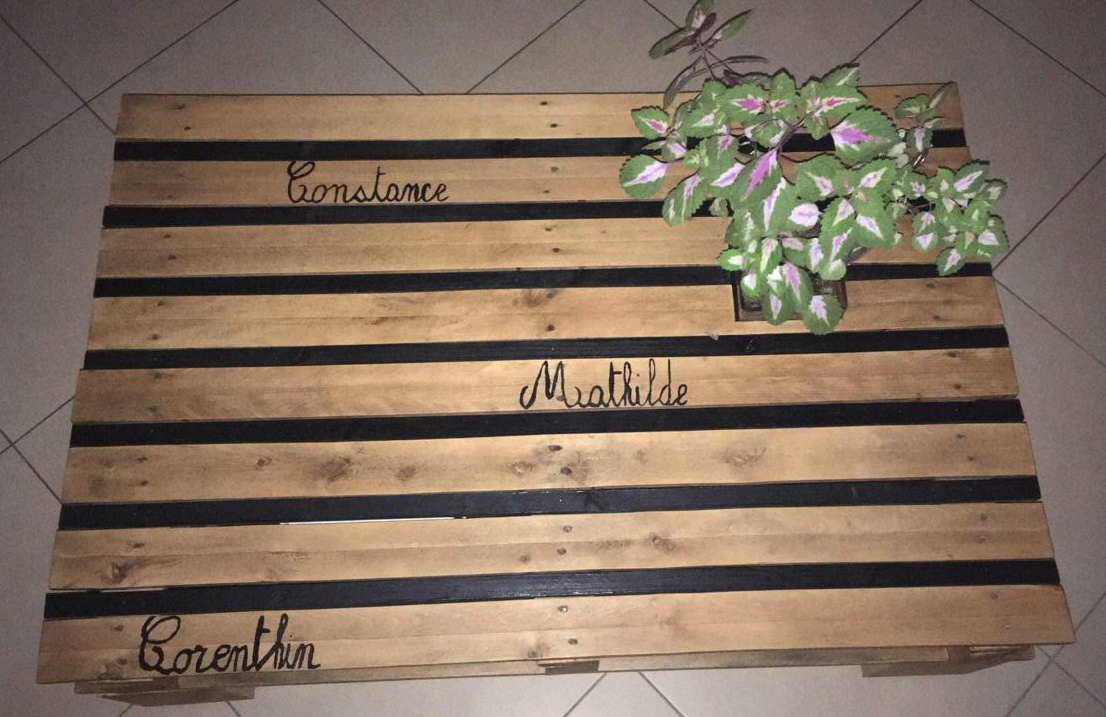 Constance
Mathilde
Corenthin